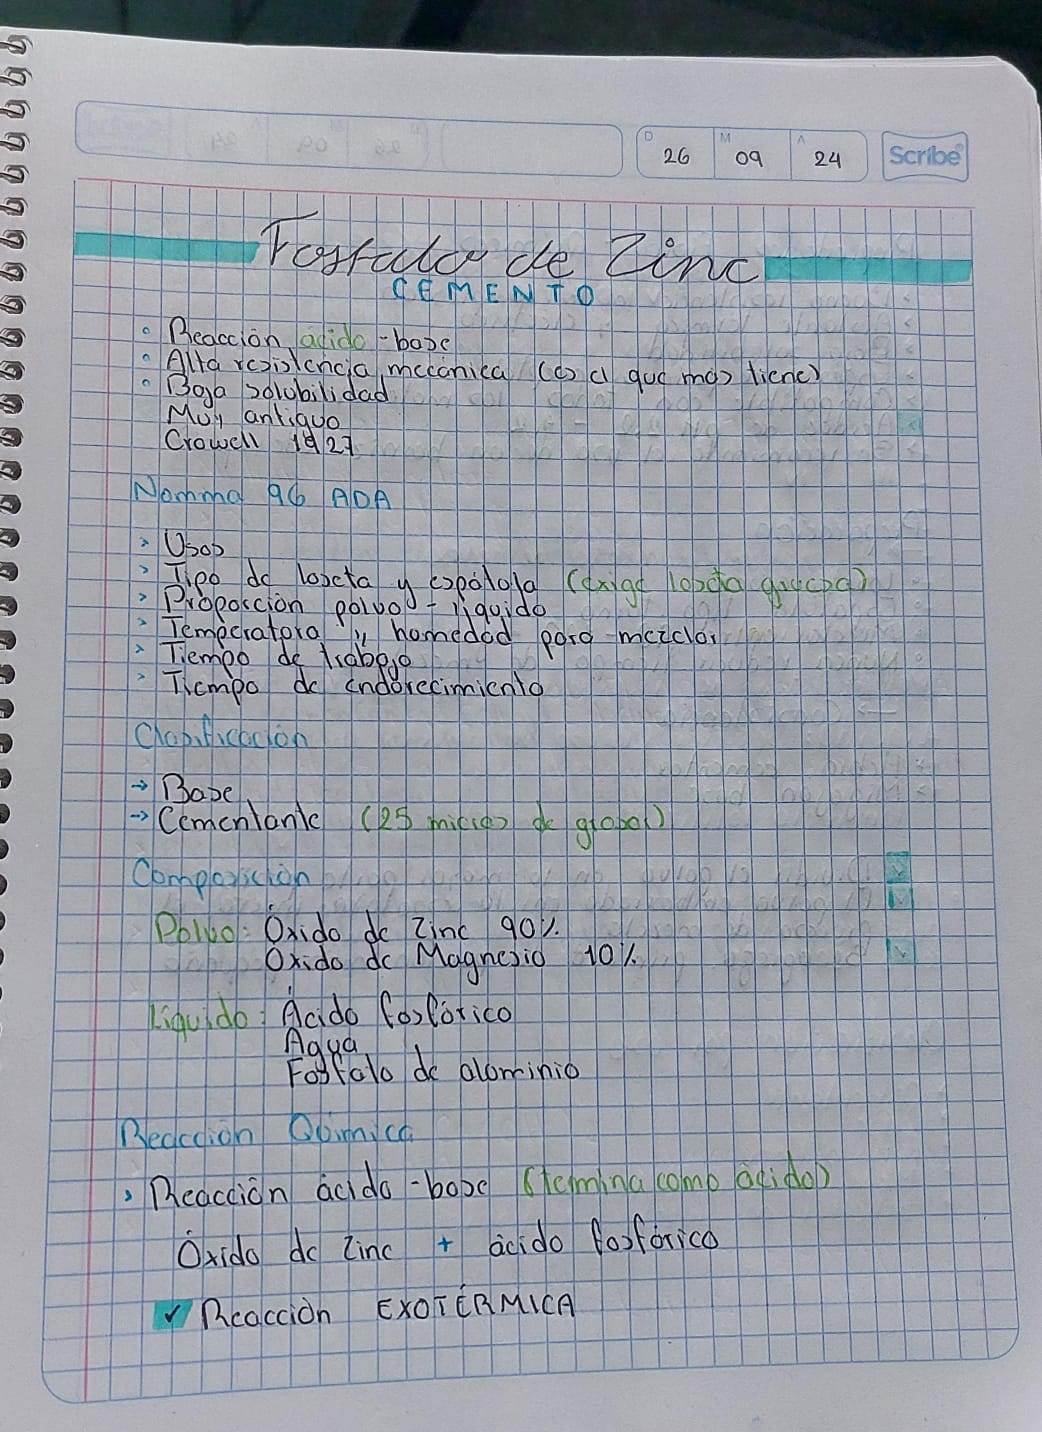 D 26 M 09 A 24 Scribe
Fosfato de Zinc
CEMENTO
° Reacción ácido-base
° Alta resistencia mecánica (es el que mas tiene)
° Baja solubilidad
Muy antiguo
Crowell 1927
Nomma 96 ADA
> Usos
> Tipo de loseta y espátula (exige loseta gruesa)
> Proporción polvo - líquido
> Temperatura y humedad para mezclar
> Tiempo de trabajo
> Tiempo de endurecimiento
Clasificación
→ Base
→ Cementante (25 micras de grosor)
Composición
Polvo: Óxido de Zinc 90%
Oxido de Magnesio 10%
Liquido: Ácido fosfórico
Agua
Fosfato de aluminio
Reacción Química
> Reacción ácido-base (temina como ácido)
Óxido de Zinc + ácido fosfórico
✓ Reacción EXOTÉRMICA